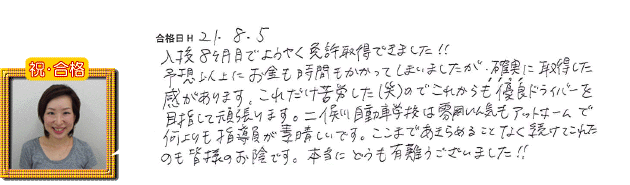 合格日H 21.8.5
祝・合格
入校8ヶ月目でようやく免許取得できました!!
予想以上にお金も時間もかかってしまいましたが、確実に取得した
感があります。これだけ苦労した(笑)のでこれからも優良ドライバーを
目指して頑張ります。二俣川自動車学校は雰囲い気もアットホームで
何よりも指導員が素晴しいです。ここまであきらめることなく続けてこれた
のも皆様のお陰です。本当にどうも有難うございました!!